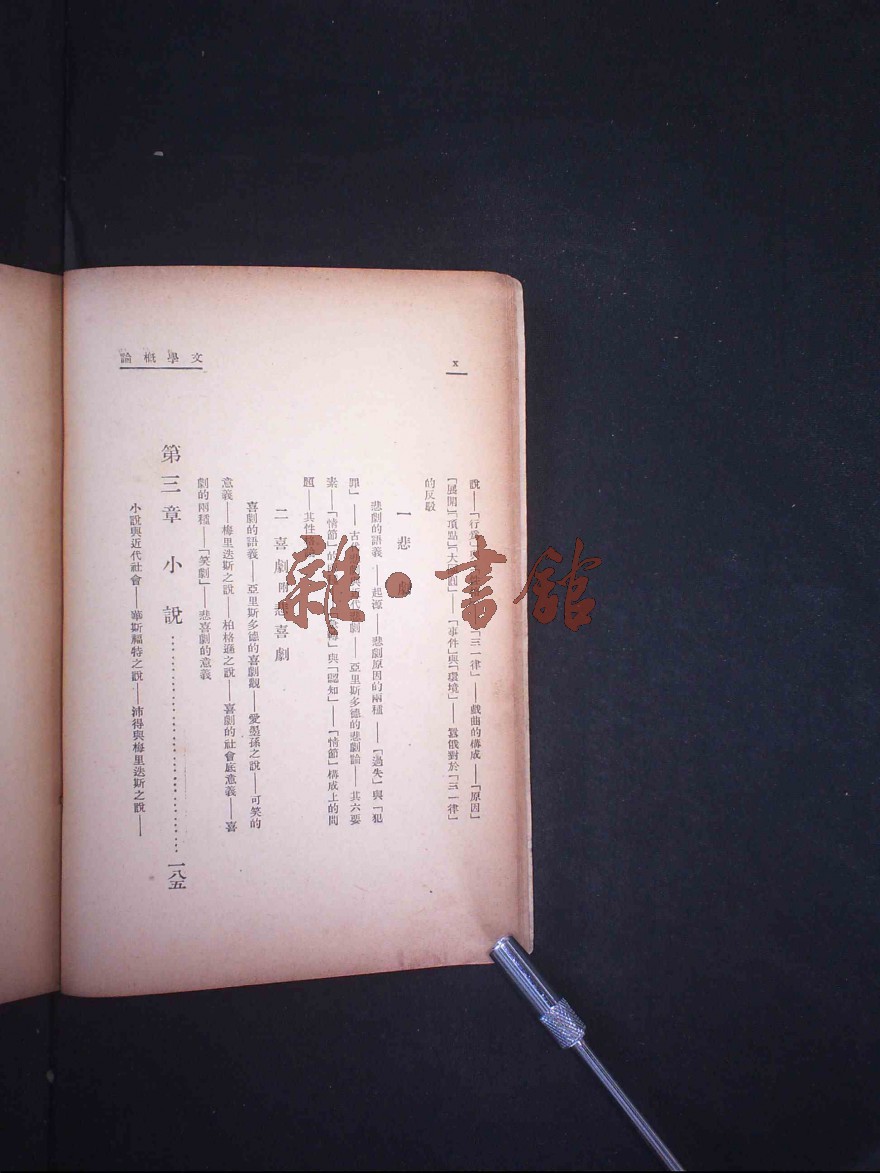 文學概論
x
說——「行爲」「三一律」——戲曲的構成——「原因」
「展開」「頂點」「大」——「事件」與「環境」——囂俄對於「三一律」
的反駁
一 悲劇
悲劇的語義——起源——悲劇原因的兩種——「過失」與「犯
罪」——古代代劇——亞里斯多德的悲劇論——其六要
素——「情節」的與「認知」——「情節」構成上的問
題——其性
二 喜劇附悲喜劇
喜劇的語義——亞里斯多德的喜劇觀——愛墨孫之說——可笑的
意義——梅里迭斯之說——柏格遜之說——喜劇的社會底意義——喜
劇的兩種——「笑劇」——悲喜劇的意義
第三章 小說……一八五
小說與近代社會——華斯福特之說——沛得與梅里迭斯之說——
雜·書館